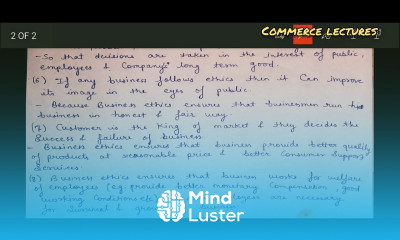 2 OF 2
COMMERCE LECTURES
- So that decisions are taken in the interest of public,
employees & Company's long term good.
(6) If any business follows ethics then it can improve
its image in the eyes of public
- Because Business ethics ensures that businessmen run
business in honest & fair way
(7) Customer is the King of market & they decides the
Success & failure of business
Business ethics ensures that business provide better quality
of products at reasonable price & better Consumer Support
Services
(8) Business ethics ensures that business works for welfare
of employees (eg. provide better monetary Compensation, good
working Conditions etc employees are necessary
for Survival &
Mind
Luster